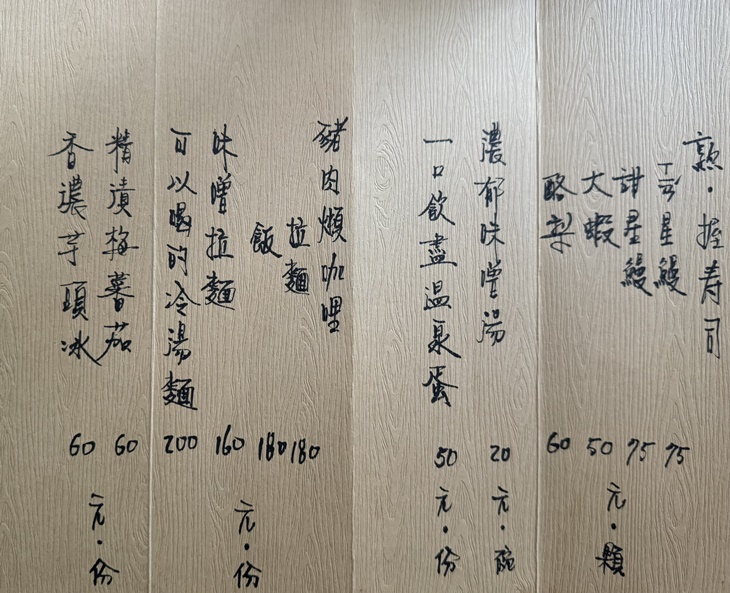 熟・握寿司
雲星鰻 75
甜星鰻 75
大蝦 50
酪梨 60
元・顆
濃郁味噌湯 20
元・碗
一口飲盡溫泉蛋 50
元・份
豬肉煩咖哩
拉麵 180
飯 180
味噌拉麵 160
可以喝的冷湯麵 200
元・份
精漬梅蕃茄 60
香濃芋頭冰 60
元・份